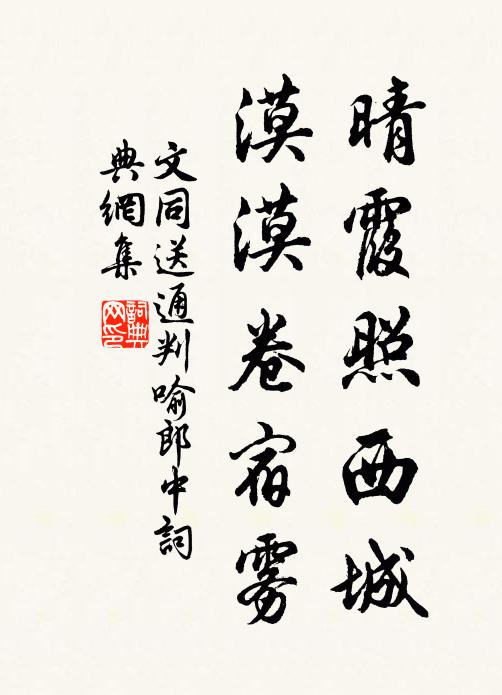 晴霞照西城
漠漠卷宿雾
文同送通判喻郎中詞
典網集
詞典
网印